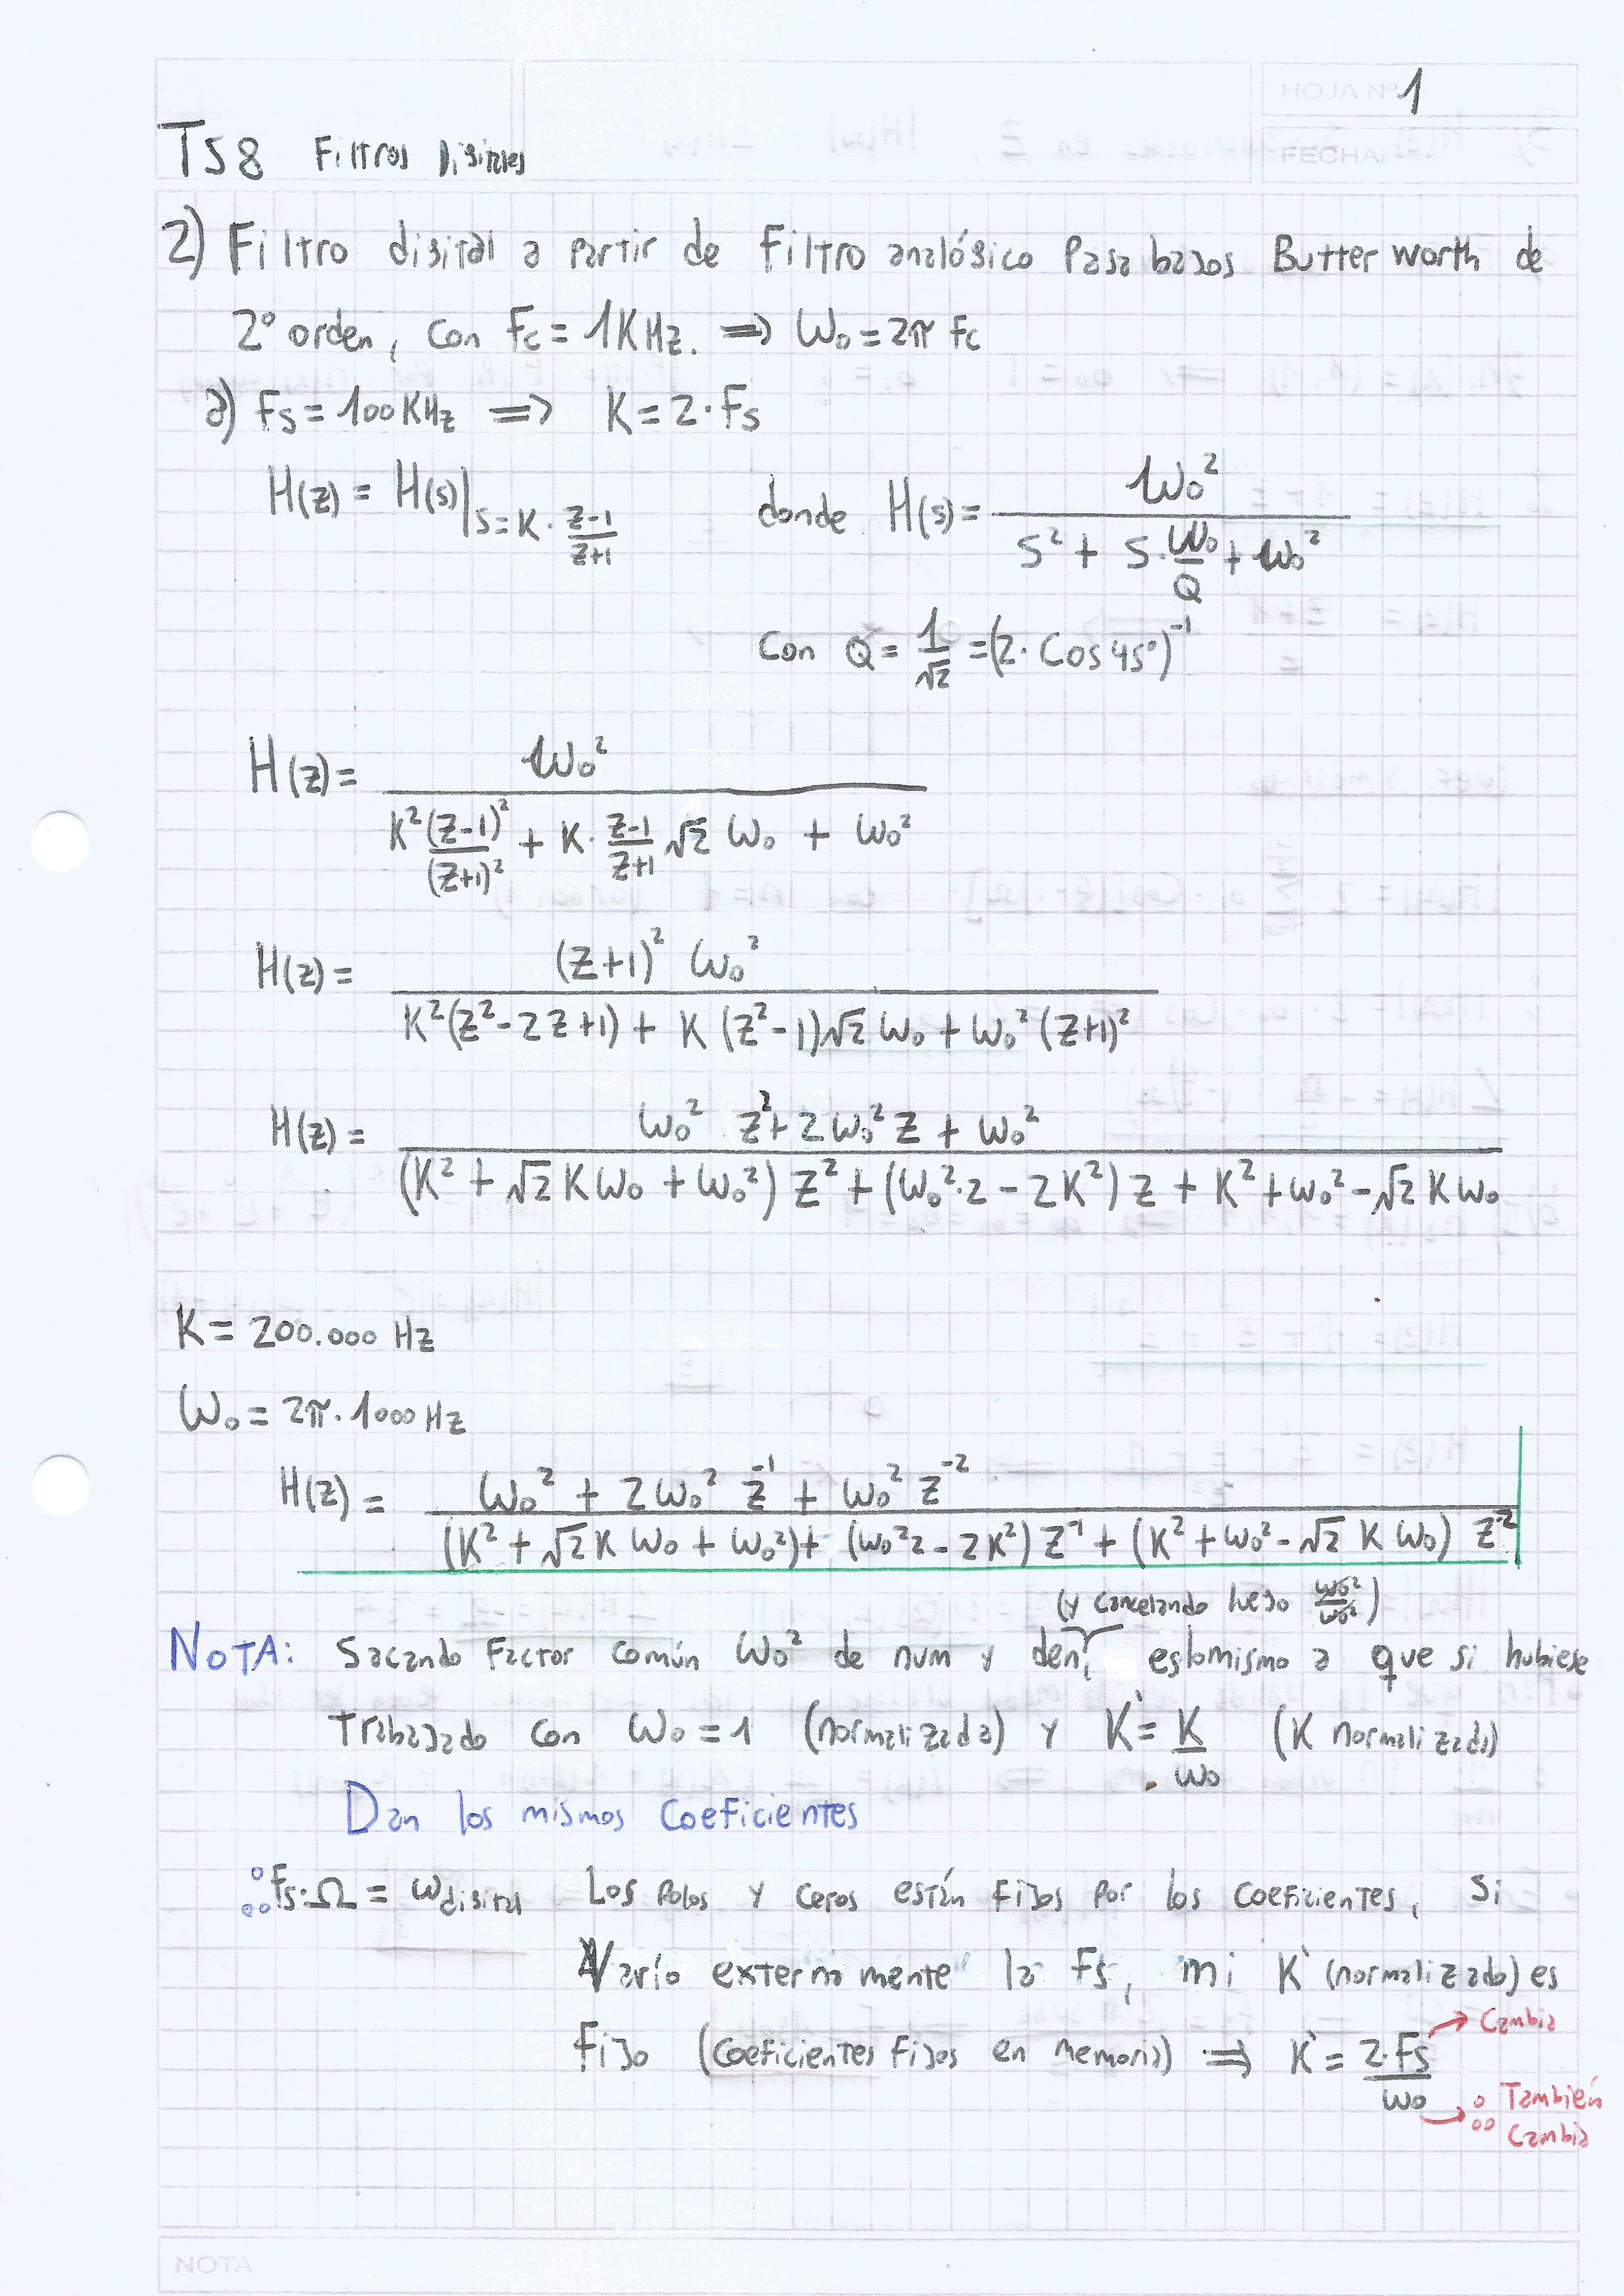 HOJA Nº 1
FECHA
TS8 Filtros Digitales
2) Filtro digital a partir de Filtro analógico Pasa bajos Butter worth de
2º orden, con Fc = 1KHz. ⇒ ω₀ = 2π Fc
a) Fs = 100 KHz ⇒ K = 2·Fs
H(z) = H(s)|s = K · (z-1)/(z+1) donde H(s) = 1ω₀² / (s² + s·ω₀/Q + ω₀²)
Con Q = 1/√2 = (2·Cos 45°)⁻¹
H(z) = 1ω₀² / (K²(z-1)²/(z+1)² + K·(z-1)/(z+1) √2 ω₀ + ω₀²)
H(z) = (z+1)² ω₀² / (K²(z²-2z+1) + K(z²-1)√2 ω₀ + ω₀²(z+1)²)
H(z) = (ω₀² z² + 2ω₀² z + ω₀²) / ((K² + √2 K ω₀ + ω₀²) z² + (ω₀²·2 - 2K²) z + K² + ω₀² - √2 K ω₀)
K = 200.000 Hz
ω₀ = 2π·1000 Hz
H(z) = (ω₀² + 2ω₀² z⁻¹ + ω₀² z⁻²) / ((K² + √2 K ω₀ + ω₀²) + (ω₀²2 - 2K²) z⁻¹ + (K² + ω₀² - √2 K ω₀) z⁻²)
(y cancelando luego ω₀²/ω₀²)
NOTA: Sacando Factor común ω₀² de num y den, es lo mismo a que si hubiese
Trabajado con ω₀ = 1 (normalizada) y K' = K/ω₀ (K normalizada)
Dan los mismos Coeficientes
∴ fs·Ω = ω digital Los Polos y Ceros están Fijos por los coeficientes, Si
Varío externa mente la Fs, mi K' (normalizado) es
Fijo (Coeficientes Fijos en memoria) ⇒ K' = 2·Fs/ω₀ → Cambia
→ ∴ También
Cambia
NOTA